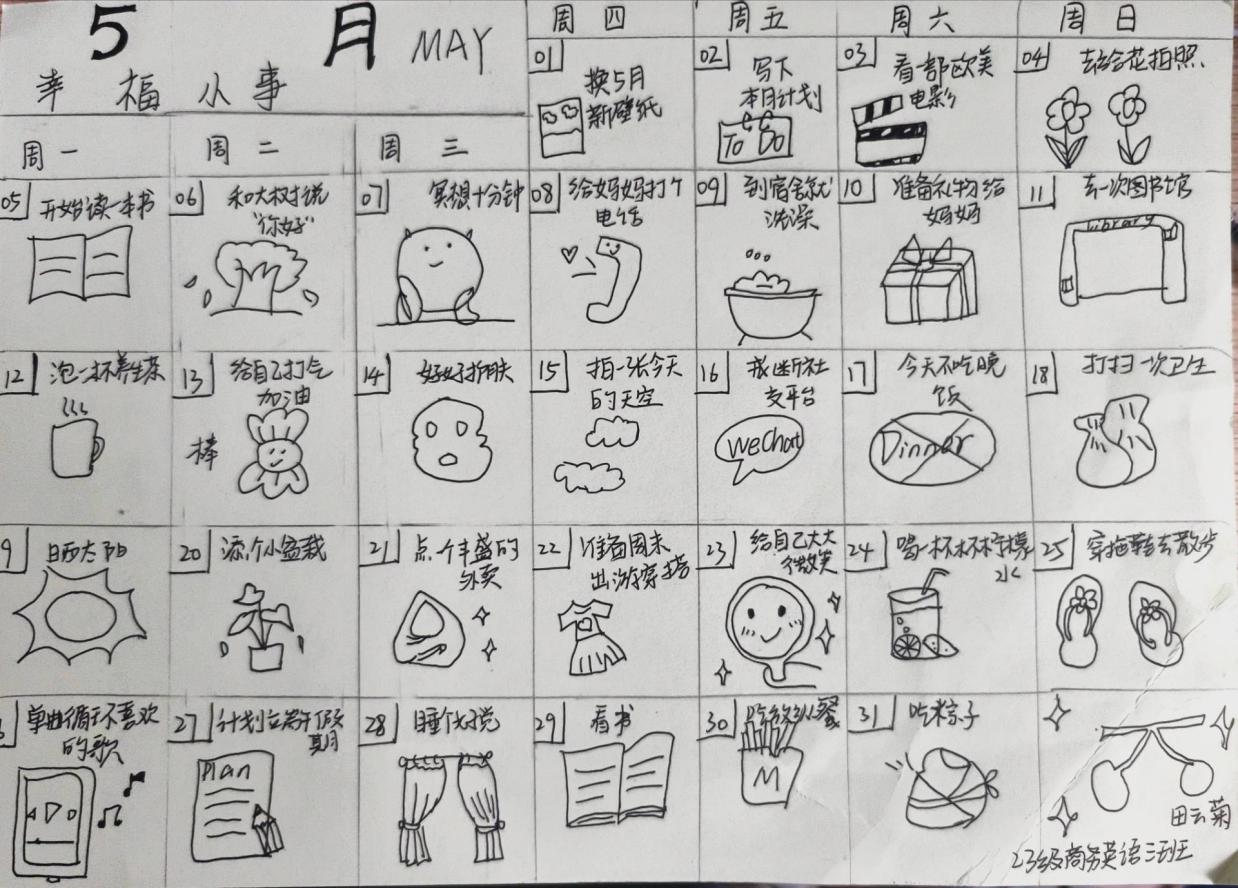 5 月 MAY
幸福小事
周四
周五
周六
周日
01
换5月
新壁纸
02
写下
本日计划
To Do
03
看一部欧美
电影
04
去给花拍照
周一
周二
周三
05
开始读一本书
06
和大树说
“你好”
07
冥想十分钟
08
给妈妈打个
电话
09
到宿舍就
洗澡
10
准备礼物给
妈妈
11
去一次图书馆
Library
12
泡一杯养生茶
13
给自己打气
加油
棒
14
好好护肤
15
拍一张今天
的天空
16
戒断社
交平台
WeChat
17
今天不吃晚
饭
Dinner
18
打扫一次卫生
9
晒太阳
20
添个小盆栽
21
点个丰盛的
外卖
22
准备周末
出游穿搭
23
给自己大大
微笑
24
喝一杯柠檬
水
25
穿拖鞋去散步
单曲循环喜欢
的歌
27
计划立端午假
期
Plan
28
睡个好觉
29
看书
30
吃放纵餐
M
31
吃粽子
田云菊
23级商务英语三班